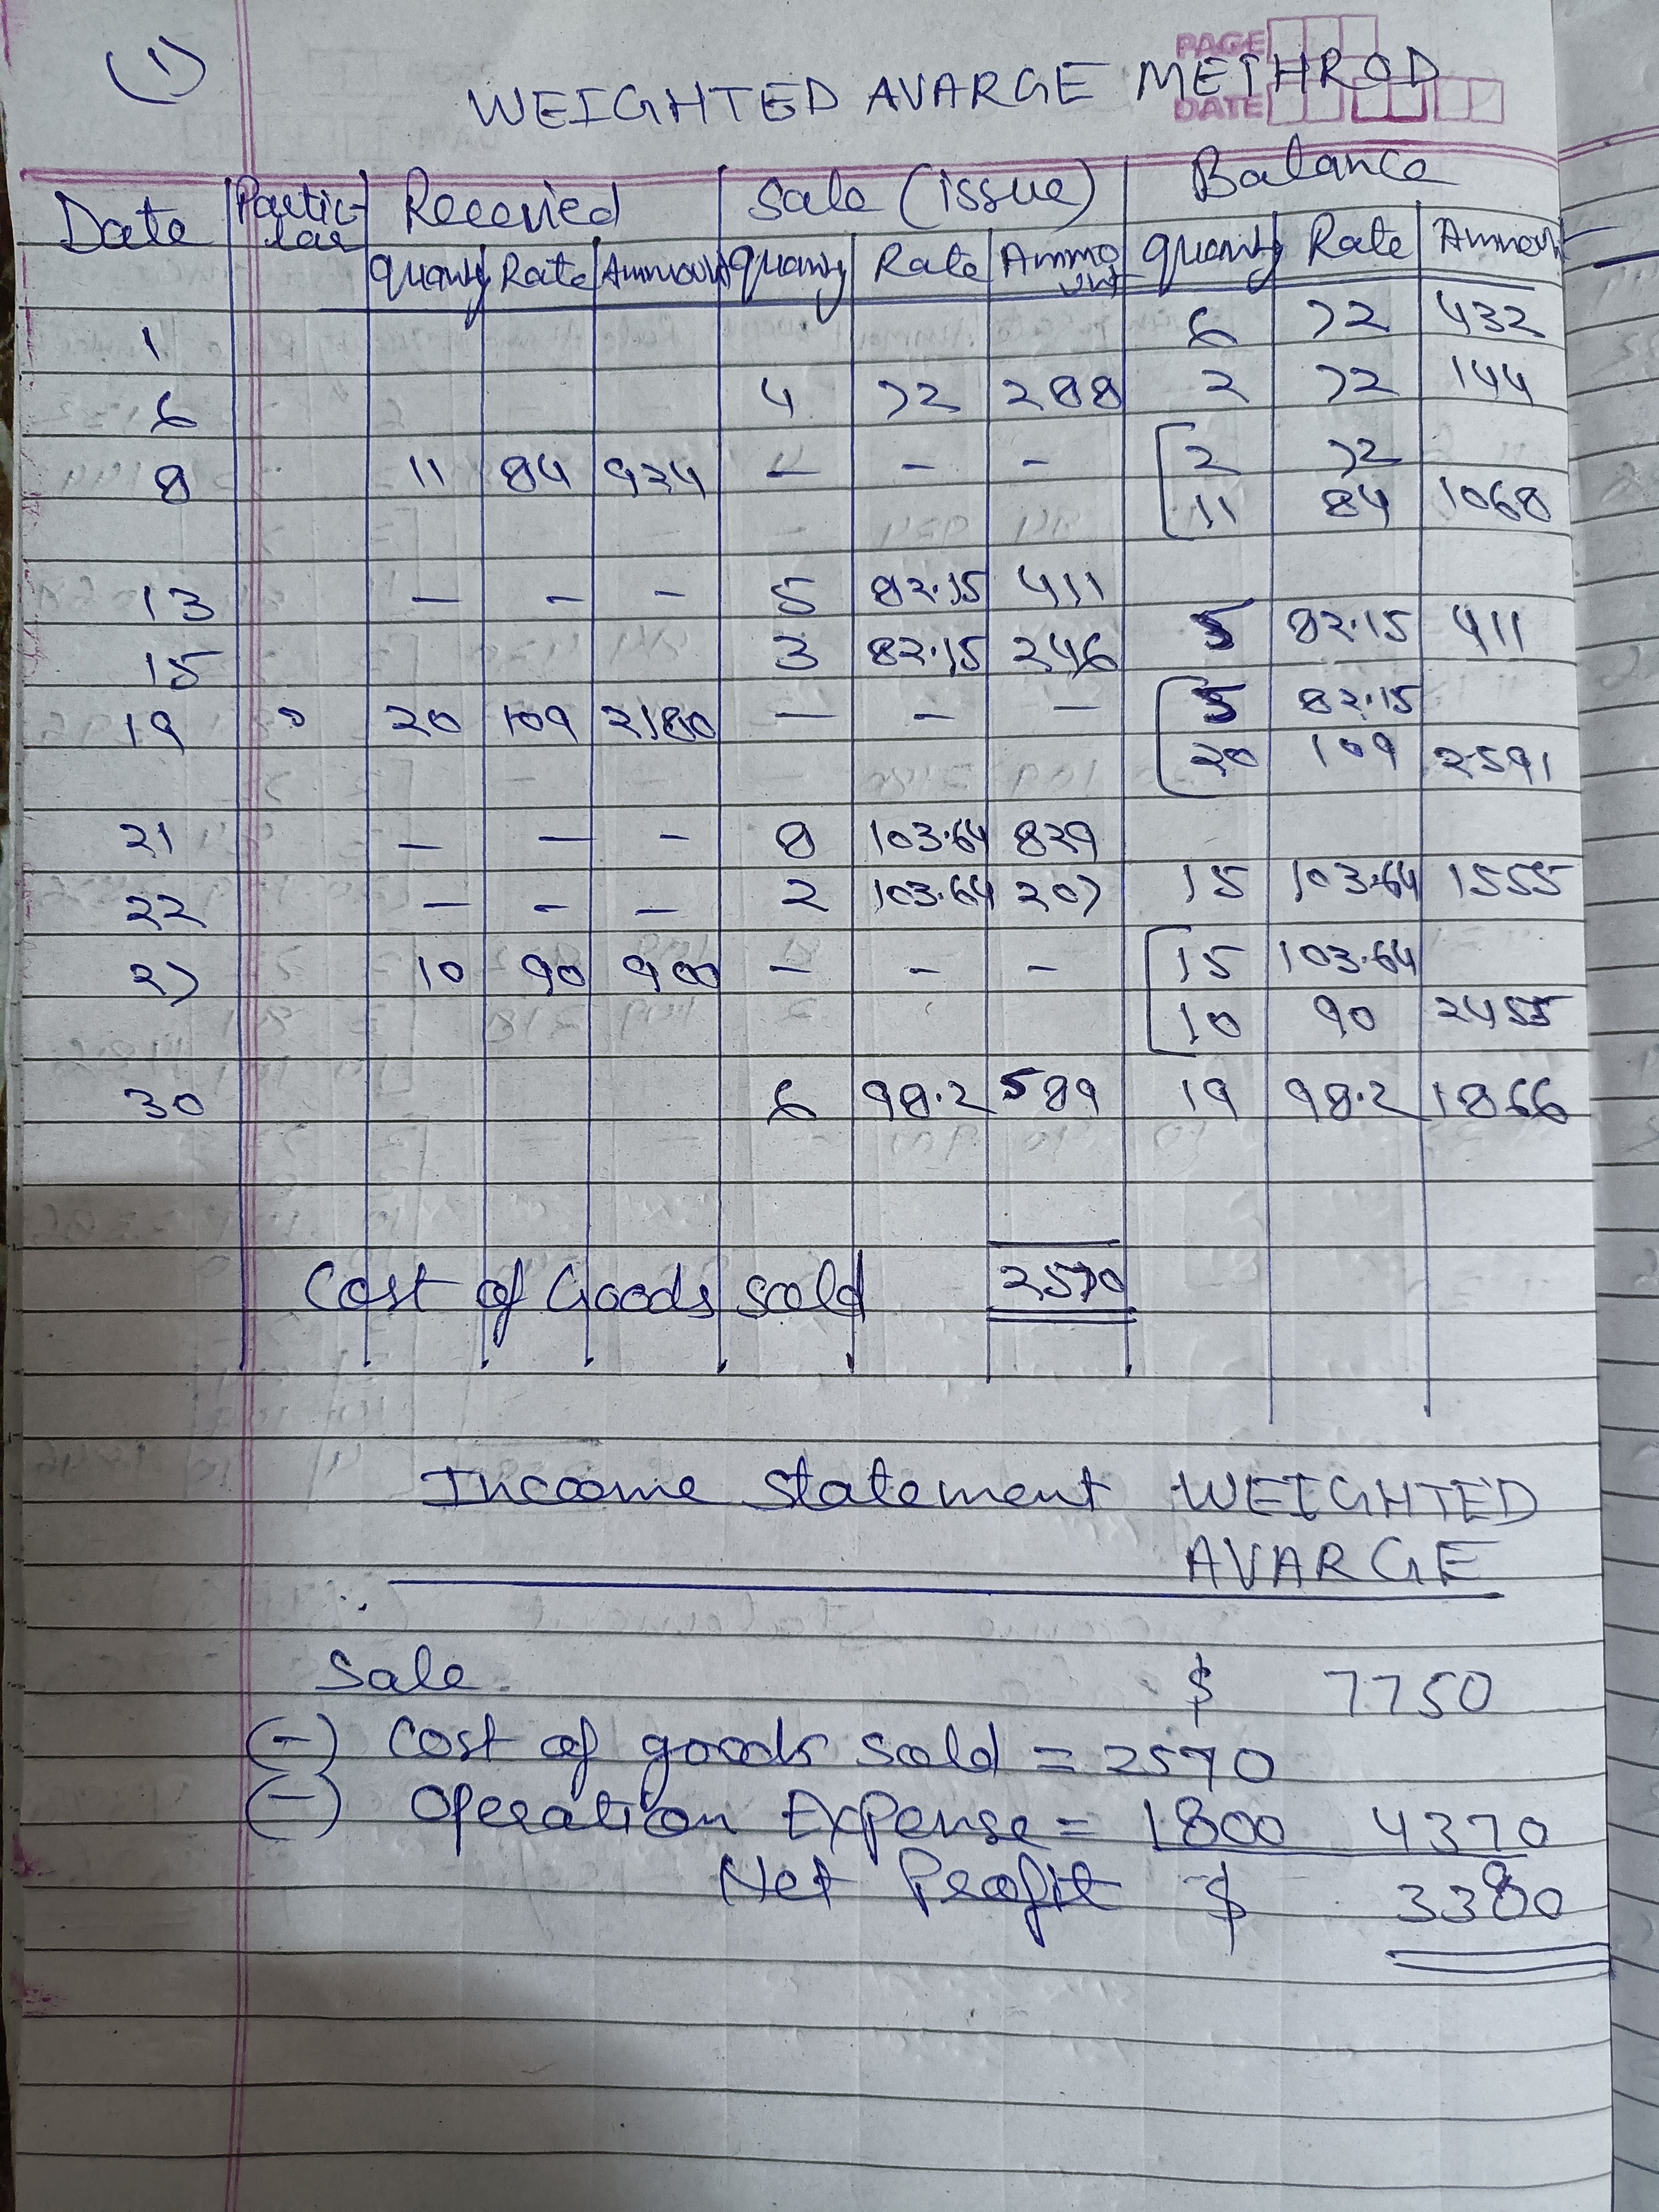 (1)
PAGE
DATE
WEIGHTED AVARGE METHROD
Date Partic- Recevied Sale (issue) Balance
lar
quanty Rate Ammount quanty Rate Ammo quanty Rate Ammount
unt
1 6 72 432
6 4 72 288 2 72 144
8 11 84 924 - - - 2 72
11 84 1068
13 - - - 5 82.15 411
15 3 82.15 246 5 82.15 411
19 20 109 2180 - - - 5 82.15
20 109 2591
21 - - - 8 103.64 829
22 - - - 2 103.64 207 15 103.64 1555
27 10 90 900 - - - 15 103.64
10 90 2455
30 6 98.2 589 19 98.2 1866
Cost of Goods sold 2570
Incoome statement WEIGHTED
AVARGE
Sale. $ 7750
(-) Cost of goods sold = 2570
(-) Operation Expense = 1800 4370
Net Profit $ 3380